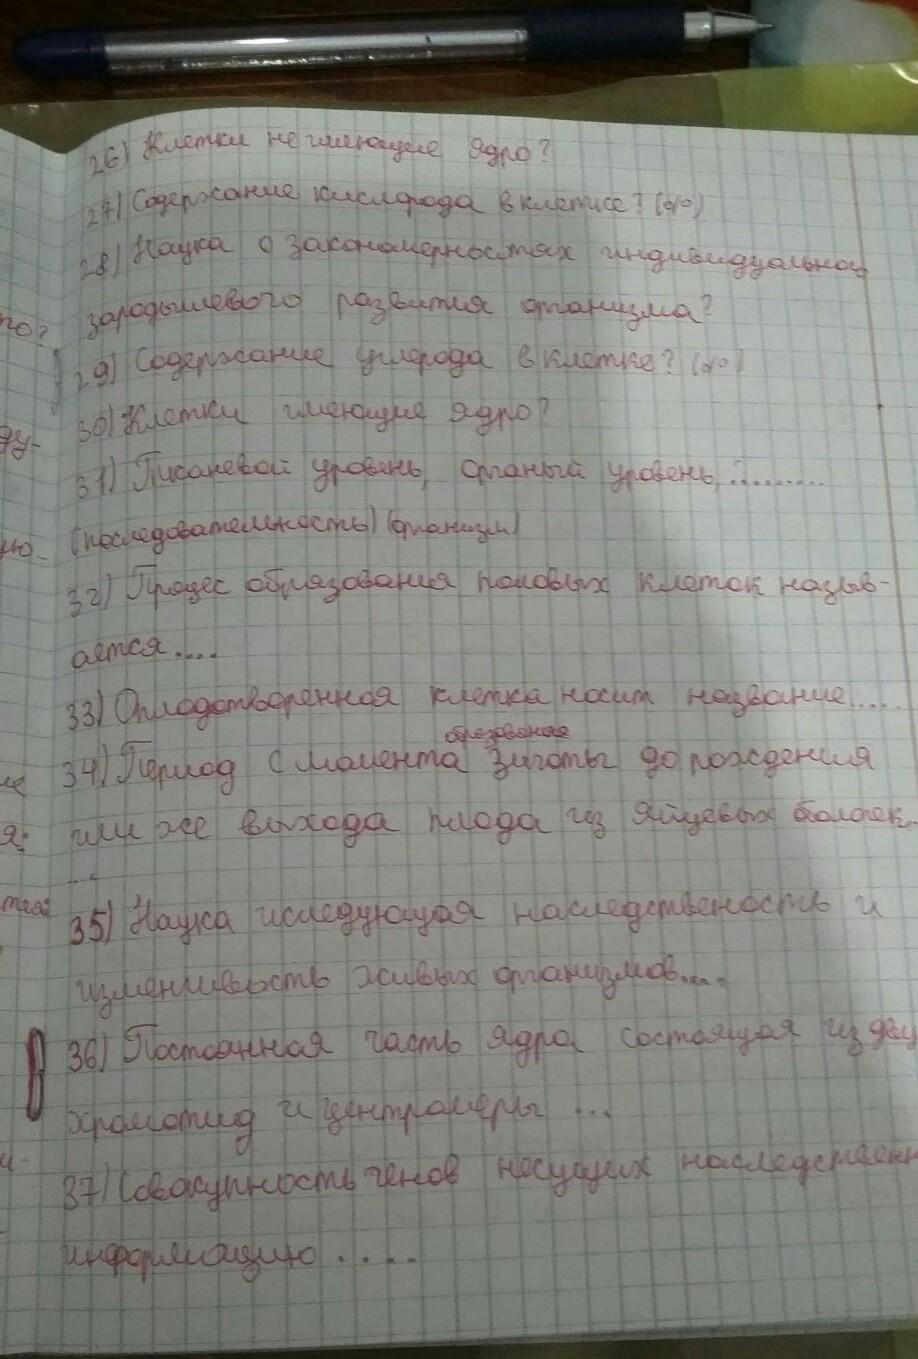 26) Клетки не имеющие ядро?
27) Содержание кислорода в клетке? (%)
28) Наука о закономерностях индивидуальной
зародышевого развития организма?
29) Содержание углерода в клетке? (%)
30) Клетки имеющие ядро?
31) уровень, уровень, ..........
(последовательность) (организм)
32) Процес образования половых клеток назыв-
ается ....
33) Оплодотворенная клетка носит название.....
образование
34) Период с момента зиготы до рождения
или же выхода плода из яйцевых
...
35) Наука иследующая наследственость и
живых организмов....
36) Постоянная часть ядра состоящая из двух
хроматид и центромеры ...
37) Совокупность генов несущих наследственн
информацию .....